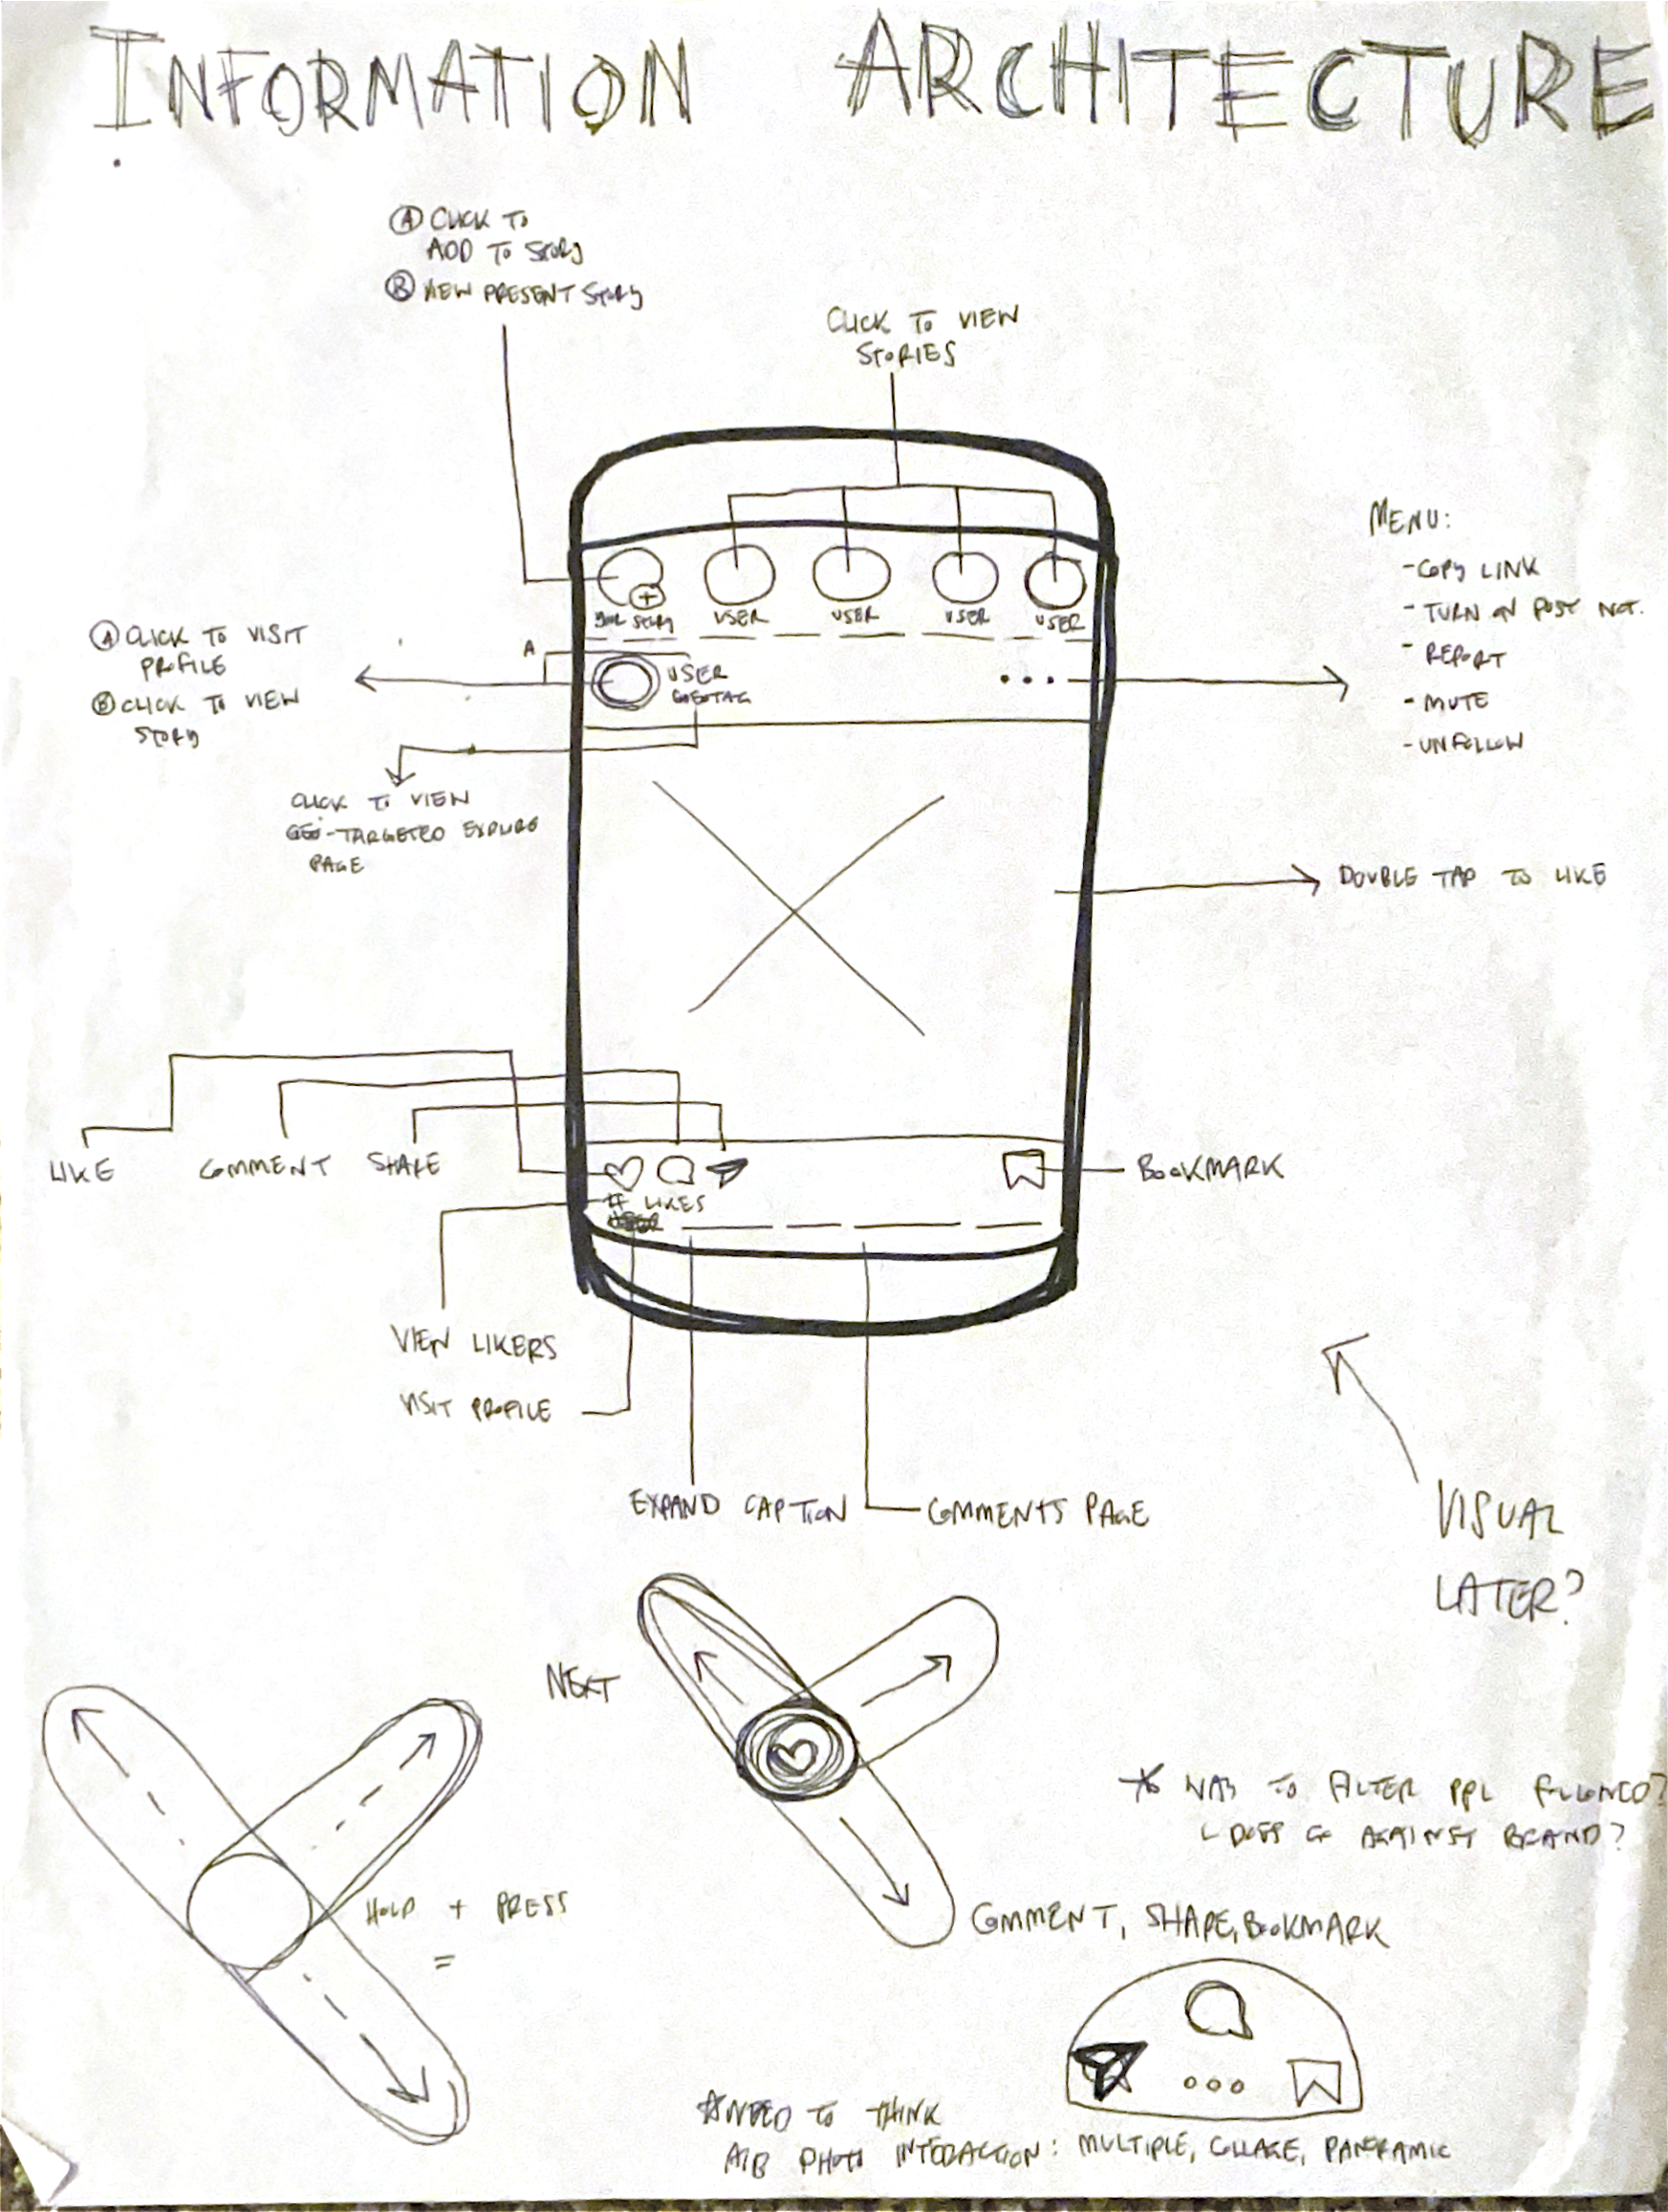 INFORMATION ARCHITECTURE
Ⓐ CLICK TO
ADD TO STORY
Ⓑ VIEW PRESENT STORY
CLICK TO VIEW
STORIES
MENU:
-COPY LINK
- TURN ON POST NOT.
- REPORT
- MUTE
- UNFOLLOW
YOUR STORY
USER
USER
USER
USER
Ⓐ CLICK TO VISIT
PROFILE
Ⓑ CLICK TO VIEW
STORY
A
USER
GEOTAG
CLICK TO VIEW
GEO-TARGETED EXPLORE
PAGE
DOUBLE TAP TO LIKE
LIKE
COMMENT
SHARE
BOOKMARK
# LIKES
USER
VIEW LIKERS
VISIT PROFILE
EXPAND CAPTION
COMMENTS PAGE
VISUAL
LATER?
NEXT
* WAY TO FILTER PPL FOLLOWED?
DOES GO AGAINST BRAND?
HOLD + PRESS
=
COMMENT, SHARE, BOOKMARK
*NEED TO THINK
A/B PHOTO INTERACTION: MULTIPLE, COLLAGE, PANORAMIC